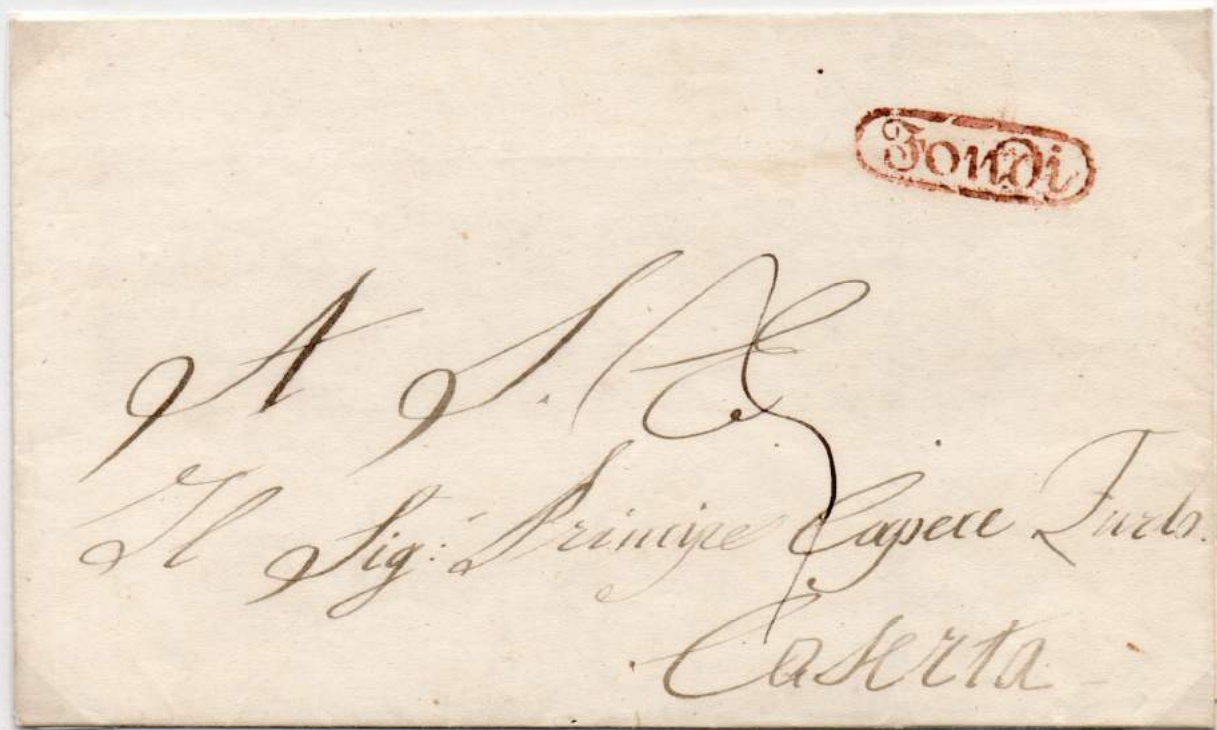 Fondi
A S. E.
Il Sig: Principe Capece Zurlo.
Caserta